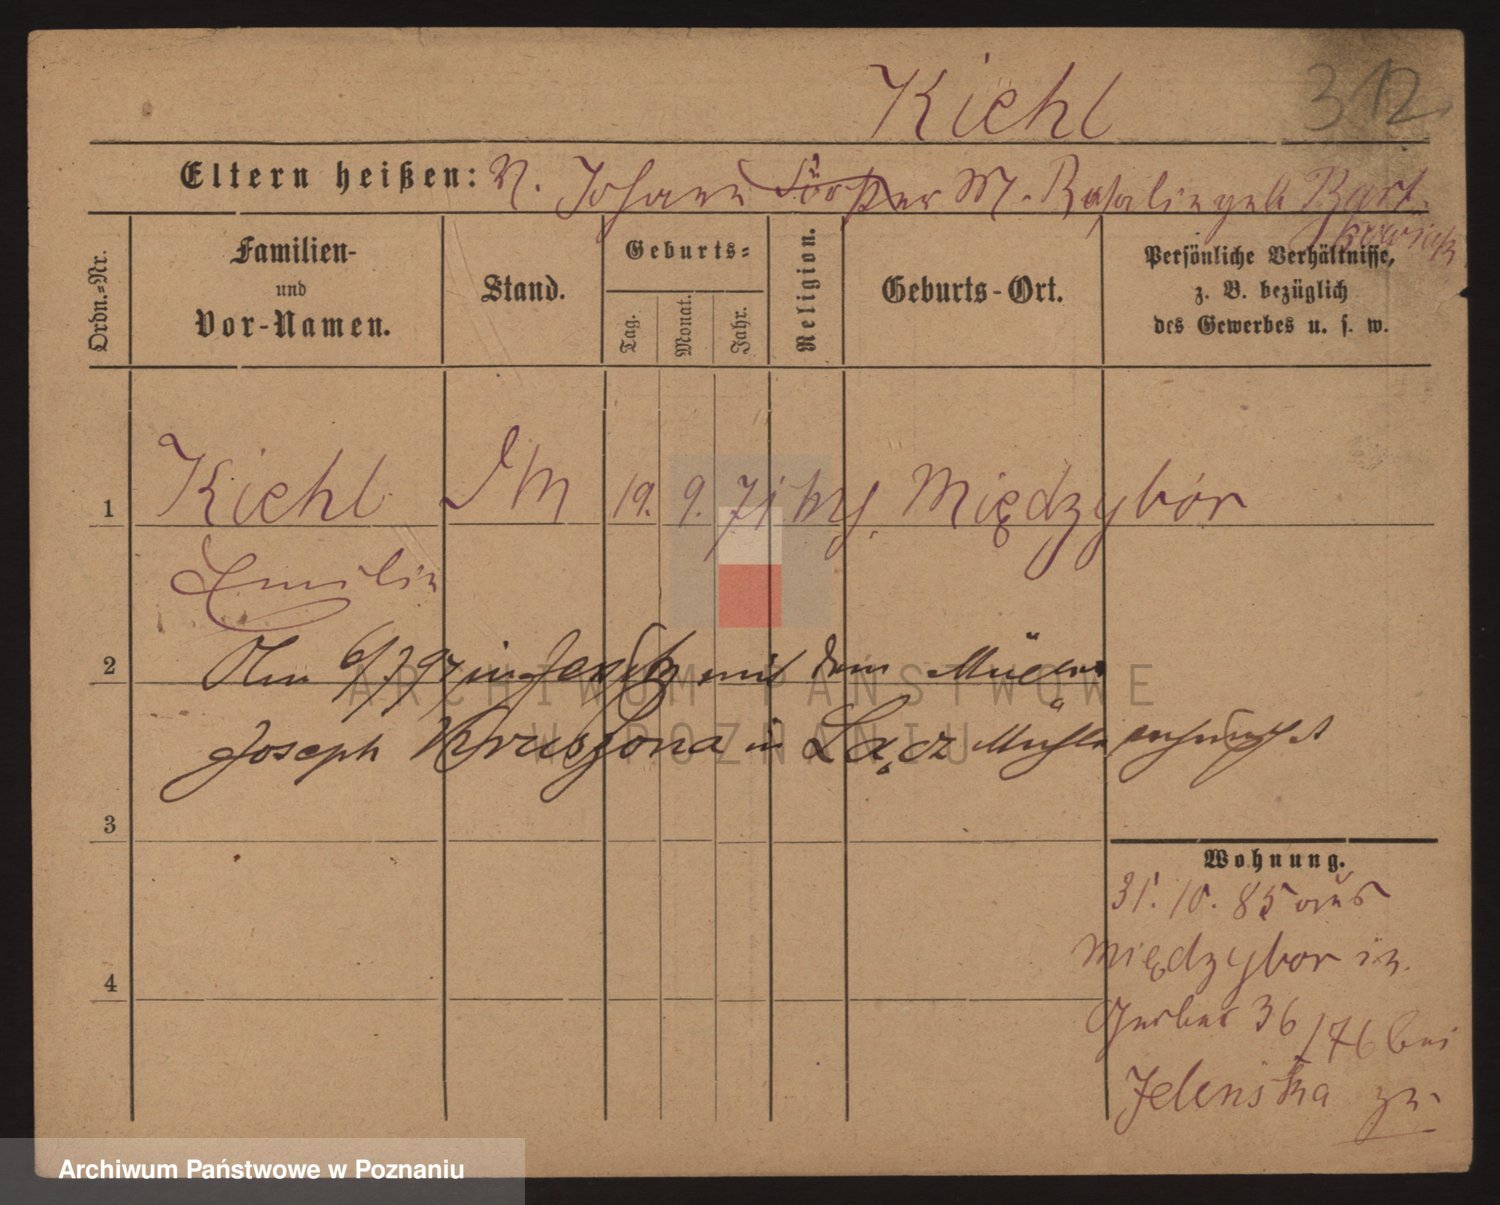 Kiehl 312
Eltern heißen: V. Johann Förster M. Rosalie geb. Bart-
kowiak
Ordn.=Nr.
Familien-
und
Vor-Namen.
Stand.
Geburts=
Tag.
Monat.
Jahr.
Religion.
Geburts-Ort.
Persönliche Verhältnisse,
z. B. bezüglich
des Gewerbes u. s. w.
1 Kiehl DM 19. 9. 71 Międzybór
Emilie
2 Am 6/7 97 in Jersitz mit dem Müller
Joseph in Lącz Mühle
3
4
Wohnung.
31. 10. 85 aus
Międzybor in
Gerber 36/76 bei
Jelenska zu
ARCHIWUM PAŃSTWOWE
W POZNANIU
Archiwum Państwowe w Poznaniu